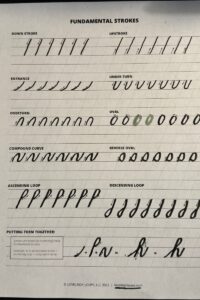 FUNDAMENTAL STROKES
DOWN STROKE
UPSTROKE
ENTRANCE
UNDER TURN
OVERTURN
OVAL
COMPOUND CURVE
REVERSE OVAL
ASCENDING LOOP
DESCENDING LOOP
PUTTING THEM TOGETHER
h h